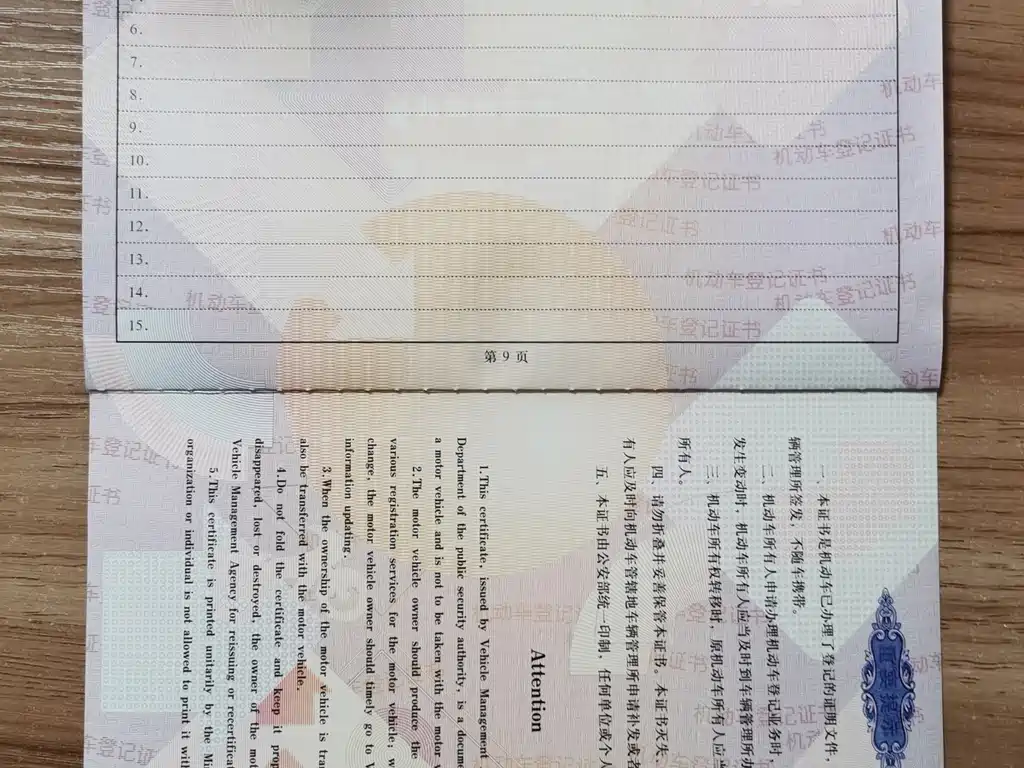 6.
7.
8.
9.
10.
11.
12.
13.
14.
15.
第 9 页
重要提示
一、本证书是机动车已办理了登记的证明文件，
辆管理所签发，不随车携带。
二、机动车所有人申请办理机动车登记业务时，
发生变动时，机动车所有人应当及时到车辆管理所办
三、机动车所有权转移时，原机动车所有人应当
所有人。
四、请勿折叠并妥善保管本证书。本证书灭失、
有人应及时向机动车管辖地车辆管理所申请补发或者
五、本证书由公安部统一印制，任何单位或个人
Attention
1.This certificate, issued by Vehicle Management
Department of the public security authority, is a docume
a motor vehicle and is not to be taken with the motor v
2.The motor vehicle owner should produce the
various registration services for the motor vehicle; w
change, the motor vehicle owner should timely go to V
information updating.
3.When the ownership of the motor vehicle is tran
also be transferred with the motor vehicle.
4.Do not fold the certificate and keep it prop
disappeared, lost or destroyed, the owner of the mot
Vehicle Management Agency for reissuing or recertificat
5.This certificate is printed unitarily by the Mi
organization or individual is not allowed to print it with
机动车登记证书
机动车登记证书
机动车登记证书